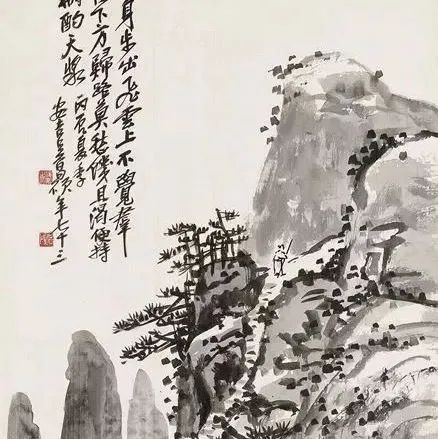 身步出飛雲上不覺羣
下方歸路莫愁饑且渴便持
酌天漿
丙辰夏季
安吉吳昌碩年七十三